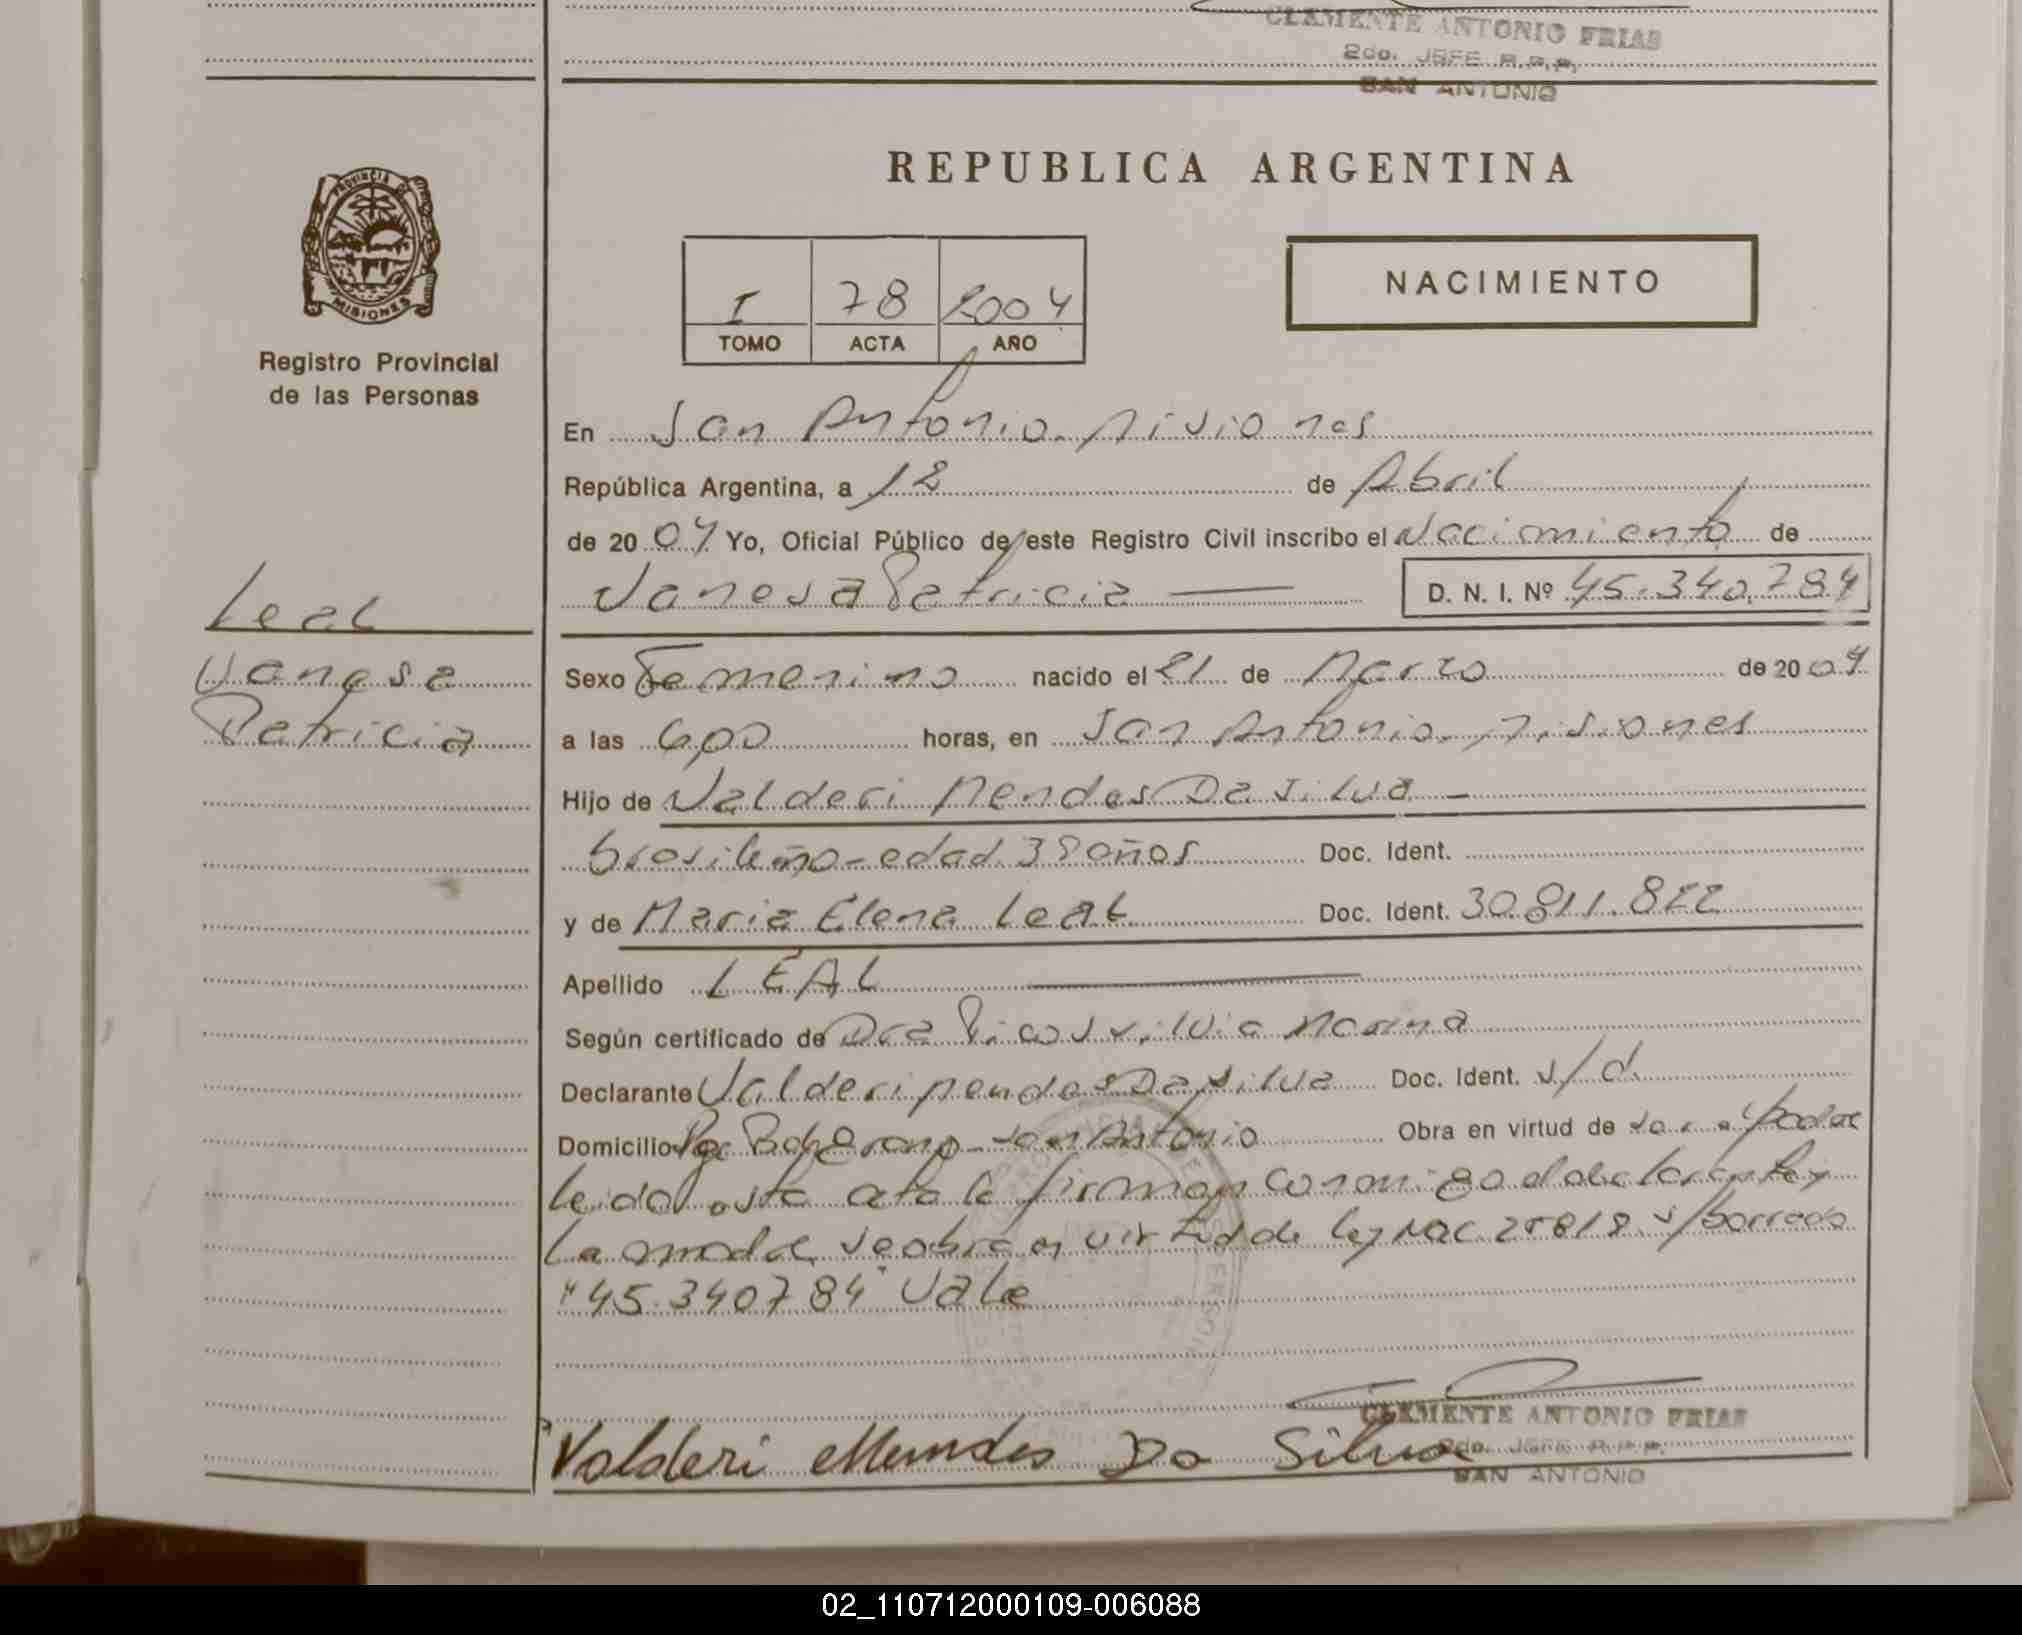 CLEMENTE ANTONIO FRIAS
2do. JEFE R.P.P.
SAN ANTONIO
REPUBLICA ARGENTINA
PROVINCIA DE
MISIONES
Registro Provincial
de las Personas
I 78 2004
TOMO ACTA AÑO
NACIMIENTO
En San Antonio. Misiones
República Argentina, a 12 de Abril
de 20 04 Yo, Oficial Público de este Registro Civil inscribo el Nacimiento de
Vanesa Patricia D. N. I. Nº 45.340.784
Leal
Vanesa
Patricia
Sexo Femenino nacido el 21 de Marzo de 20 04
a las 6,00 horas, en San Antonio. Misiones
Hijo de Valderi Mendes Da Silva
brasileño - edad 38 años Doc. Ident.
y de Maria Elena Leal Doc. Ident. 30.811.822
Apellido LEAL
Según certificado de Dra Marina
Declarante Valderi Mendes Da Silva Doc. Ident. s/d.
Domicilio San Antonio Obra en virtud de
leida esta acta la firman conmigo el declarante y
La madre se obra en virtud de ley Nac. s/borrado
"45.340784" Vale
CLEMENTE ANTONIO FRIAS
2do. JEFE R.P.P.
SAN ANTONIO
Valderi Mendes Da Silva
02_110712000109-006088